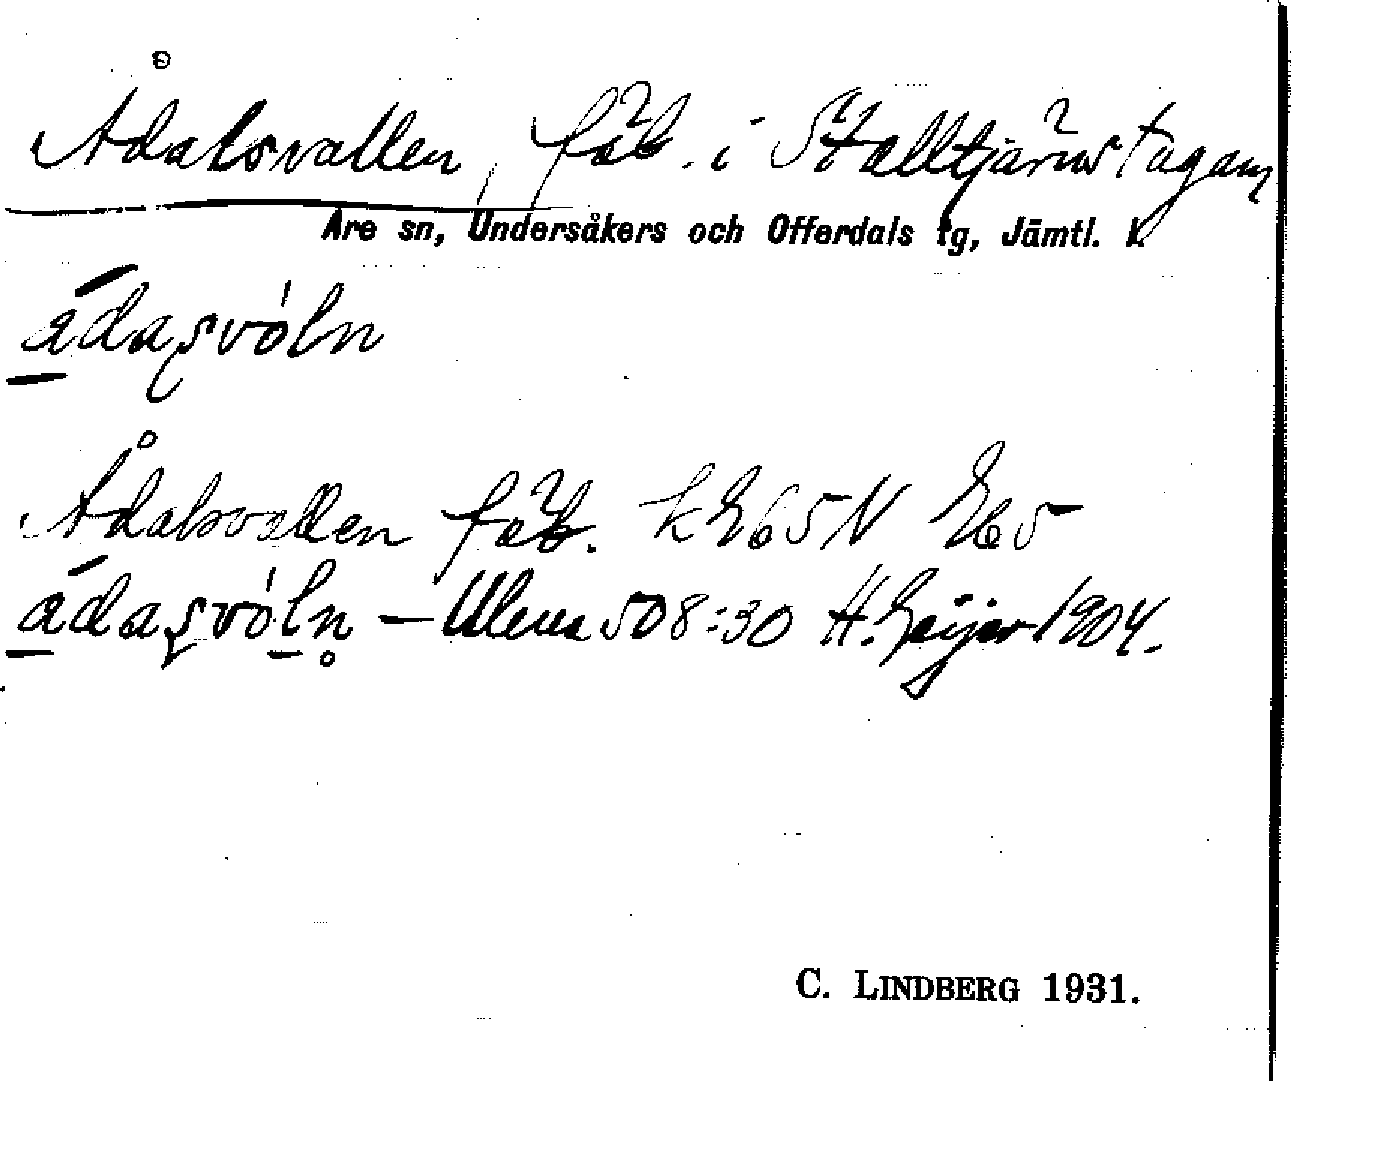 Ådalsvallen, fäb. i Stalltjärnstugan
Åre sn, Undersåkers och Offerdals tg, Jämtl. l.
ådaʂvóln
Ådalsvallen fäb. k 65 N 65
ådaʂvóln — Ulens 508:30 H. Geijer 1904.
C. LINDBERG 1931.